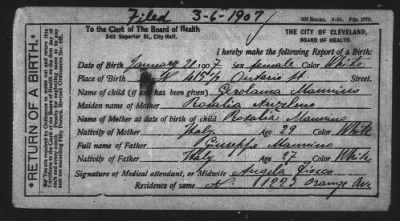 Filed 3-6-1907
To the Clerk of The Board of Health
240 Superior St., City Hall.
THE CITY OF CLEVELAND,
BOARD OF HEALTH.
RETURN OF A BIRTH.
I hereby make the following Report of a Birth:
Date of Birth January 28 1907 Sex female Color White
Place of Birth 415½ Ontario st. Street.
Name of child (if has been given) Girolama Mannino
Maiden name of Mother Rosalia
Name of Mother at date of birth of child Rosalia Mannino
Nativity of Mother Italy Age 29 Color White
Full name of Father Giuseppe Mannino
Nativity of Father Italy Age 27 Color White
Signature of Medical attendant, or Midwife Angela
Residence of same N 11223 Orange Ave